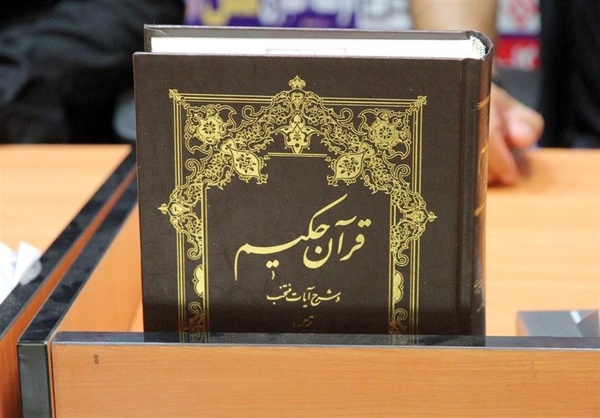 قرآن حکیم
و شرح آیات منتخب
ترجمه: